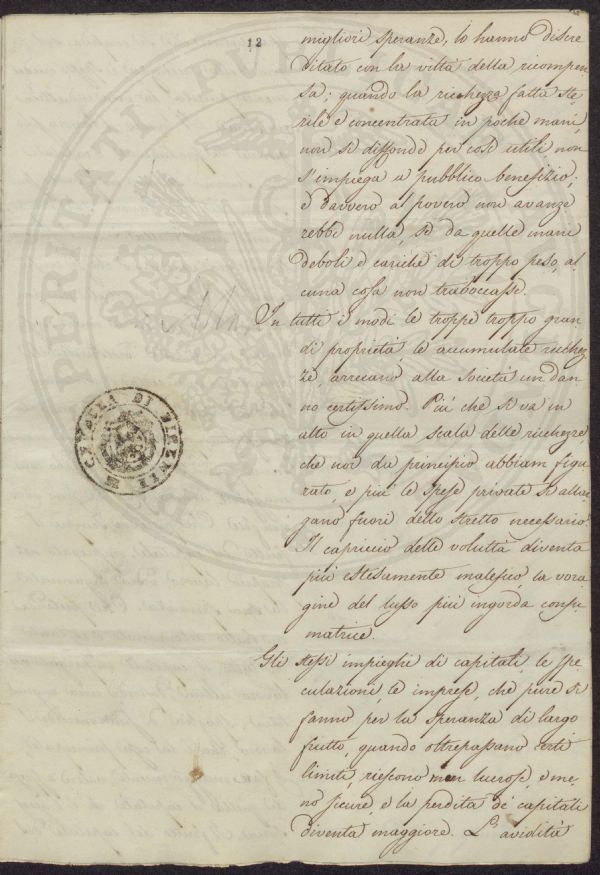 12
migliori speranze, lo hanno discre
ditato con la viltà della ricompen
sa; quando la ricchezza fatta ste
rile e concentrata in poche mani,
non si diffonde per così utili non
s'impiega a pubblico benefizio;
e davvero al povero non avanze
rebbe nulla, se da quelle mani
deboli e cariche di troppo peso, al
cuna cosa non traboccasse.
In tutti i modi le troppe troppo gran
di proprietà le accumulate ricchez
ze arrecano alla Società un dan
no certissimo. Più che si va in
alto in quella scala delle ricchezze
che noi da principio abbiam figu
rato, e più le spese private si allar
gano fuori dello stretto necessario.
Il capriccio delle voluttà diventa
più estesamente malefico, la vora
gine del lusso più ingorda consu
matrice.
Gli stessi impieghi di capitali, le spe
culazioni, le imprese, che pure si
fanno per la speranza di largo
frutto, quando oltrepassano certi
limiti, riescono men lucrose, e me
no sicure, e la perdita de' capitali
diventa maggiore. L'avidità
CAMERA DI FIRENZE
PERITATI PVB